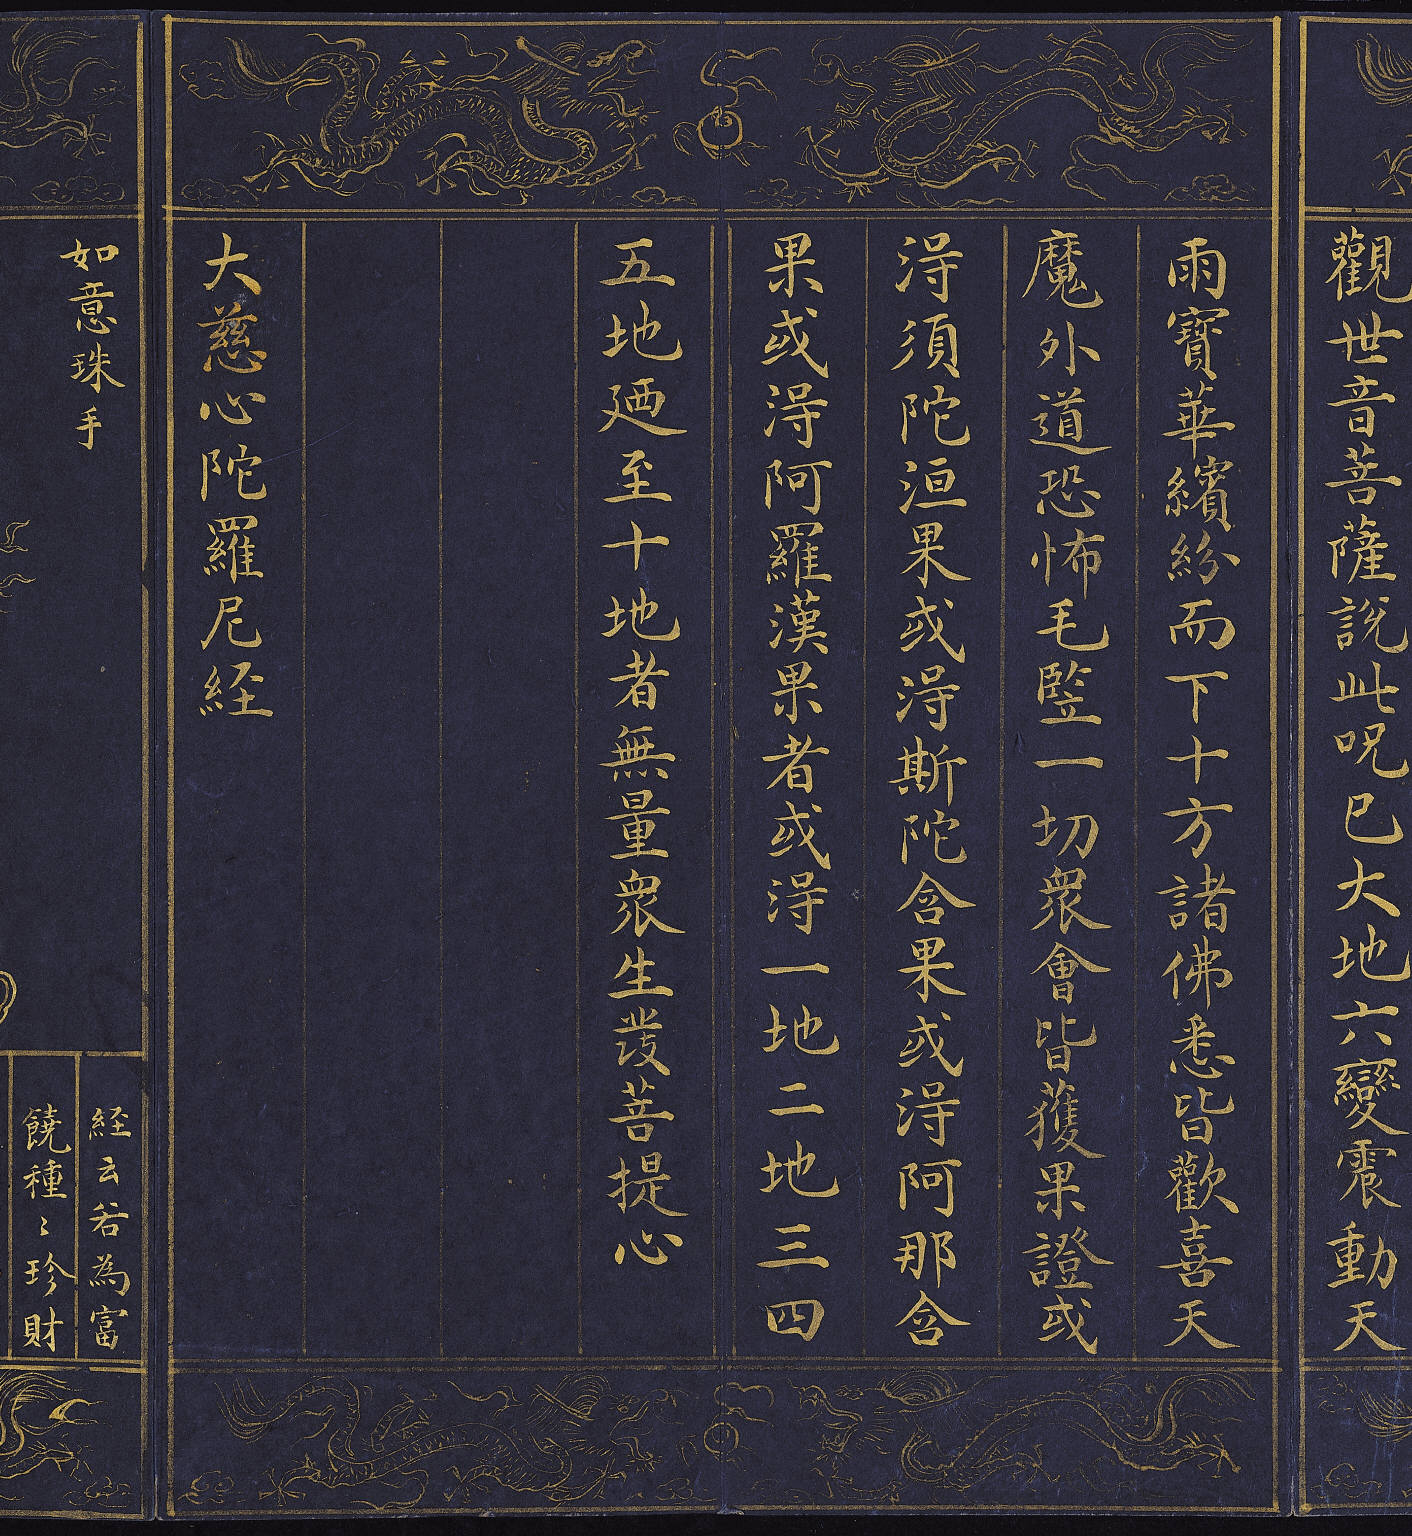 觀世音菩薩說此呪已大地六變震動天
雨寶華繽紛而下十方諸佛悉皆歡喜天
魔外道恐怖毛竪一切衆會皆獲果證或
淂須陀洹果或淂斯陀含果或淂阿那含
果或淂阿羅漢果者或淂一地二地三四
五地廼至十地者無量衆生發菩提心
大慈心陀羅尼経
如意珠手
経云若為富
饒種〻珍財